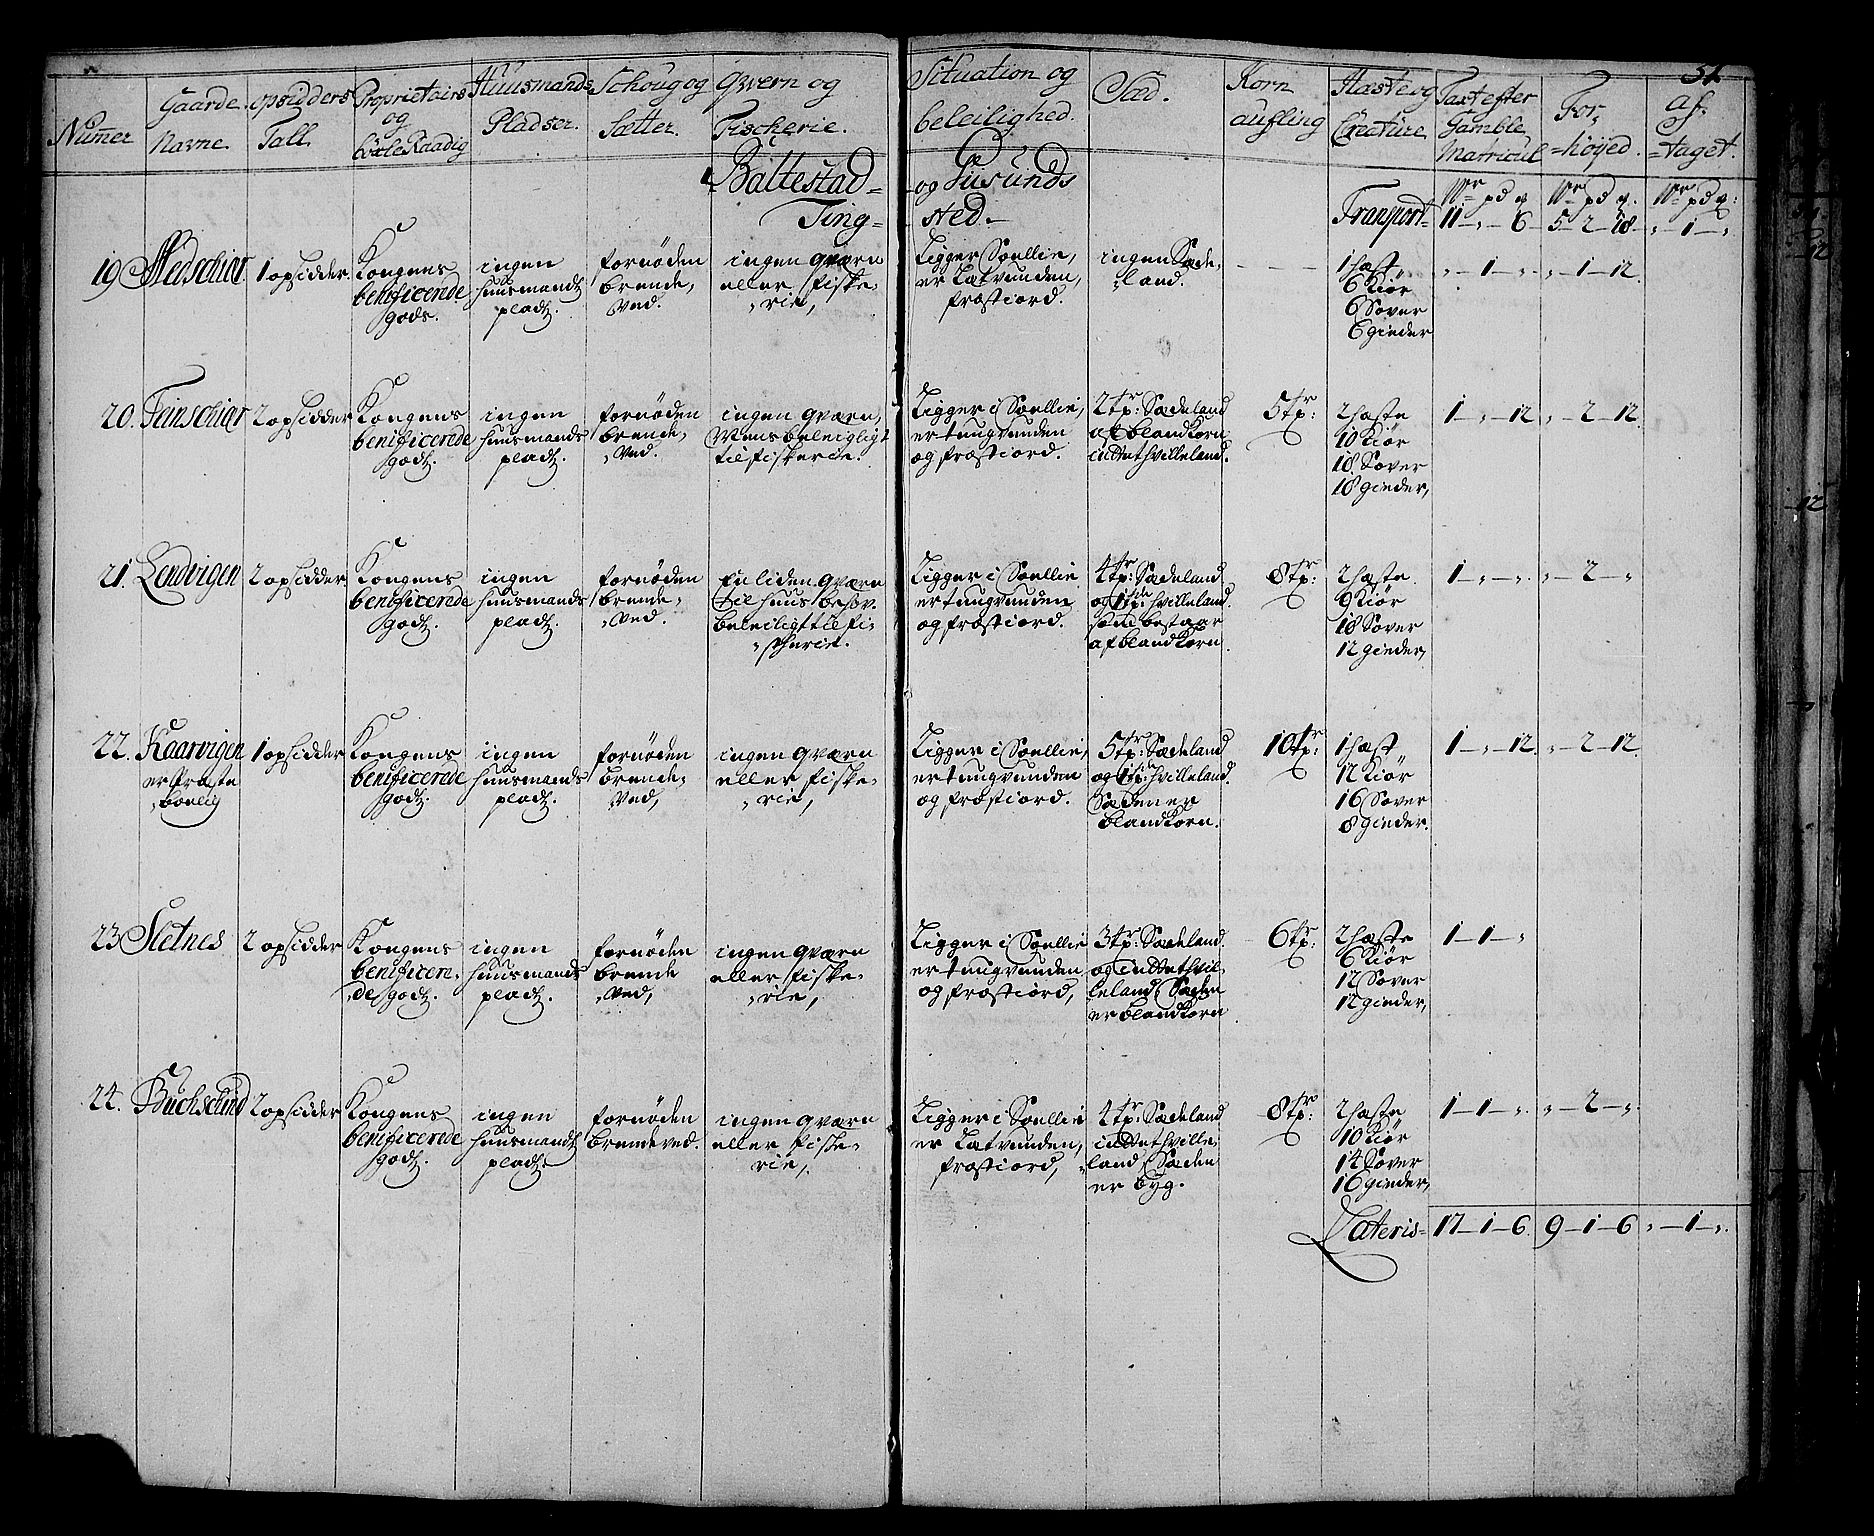 51
Numer | Gaarde Navne. | opsidders Tall. | Proprietairs og böxle Raadig | Huusmands Pladser. | Schoug og Sætter. | Qvern og Fischerie. | Situation og beleilighed. | Sæd. | Korn aufling | Hæste og Creature | Taxt efter Gamble Matricul | For- =höyed. | af- =taget.
Baltestad= og Giisunds
Ting= sted.
Transport= | Wr pd q 11 — „ — 6 | Wr pd q. 5 — 2 — 18. | Wr pd q: „ — 1 — „
19 | Nedschiær. | 1 opsidder. | Kongens benificerede gods. | ingen huusmands pladz. | fornøden brende, Ved. | ingen qværn eller fiske, rie, | Ligger i Soellie, er Letvunden, frostiord. | ingen Sæde, land. | — | 1 hæst 6 Kiør 6 Sover 6 gieder | „ — 1 — „. | „ — 1 — 12.
20. | Finschiær | 2 opsidder | Kongens benificerede godz. | ingen huusmands pladz. | fornøden brende, Ved. | ingen qværn, Mens beleigligt til fiskerie. | Ligger i Soellie, er tungvunden og frostiord. | 2 tr: Sædeland af blandkorn intet hvilleland. | 5 tr: | 2 hæste 10 Kiør 18 Sover 18 gieder, | 1 — „ — 12 | „ — 2 — 12.
21. | Lendvigen | 2 opsidder | Kongens benificerede godz. | ingen huusmands pladz. | fornøden brende, Ved. | En liden qværn til huus behov. beleiligt til fi- scherie. | Ligger i Soellie er tungvunden og frostiord. | 4 tr: Sædeland og hvilleland. som bestaar af blandkorn. | 8 tr: | 2 hæste 9 Kiør 18 Sover 12 gieder, | 1 — „ — „. | „ — 2 — „
22. | Kaarvigen er Præste bolig | 1 opsidder | Kongens benificerede godz. | ingen huusmands pladz. | fornøden brende, Ved, | ingen qværn eller fiske, rie, | Ligger i Soellie, er tungvunden og frostiord. | 5 tr: Sædeland og hvilleland. Sæden er blandkorn. | 10 tr: | 1 hæst 12 Kiør 16 Sover 8 gieder. | 1 — „ — 12. | „ — 2 — 12.
23 | Sletnes | 2 opsidder | Kongens benificere, de godz. | ingen huusmands pladz. | fornøden brende Ved, | ingen qværn eller fiske, rie, | Ligger i Soellie er tungvunden og frostiord, | 3 tr: Sædeland. og intet hvil, leland, Sæden er blandkorn | 6 tr: | 2 hæste 6 Kiør 12 Sover 12 gieder, | 1 — 1 — „
24. | Buchschind | 2 opsidder | Kongens benificerede godz. | ingen huusmands pladz. | fornøden brendeved. | ingen qværn eller fiske, rie, | Ligger i Soellie er Letvunden, frostiord, | 4 tr: Sædeland intet hville, land, Sæden er byg. | 8 tr: | 2 hæste 10 Kiør 14 Sover 16 gieder, | 1 — 1 — „. | „ — 2 — „.
Lateris= | 17 — 1 — 6. | 9 — 1 — 6 | „ — 1 — „.